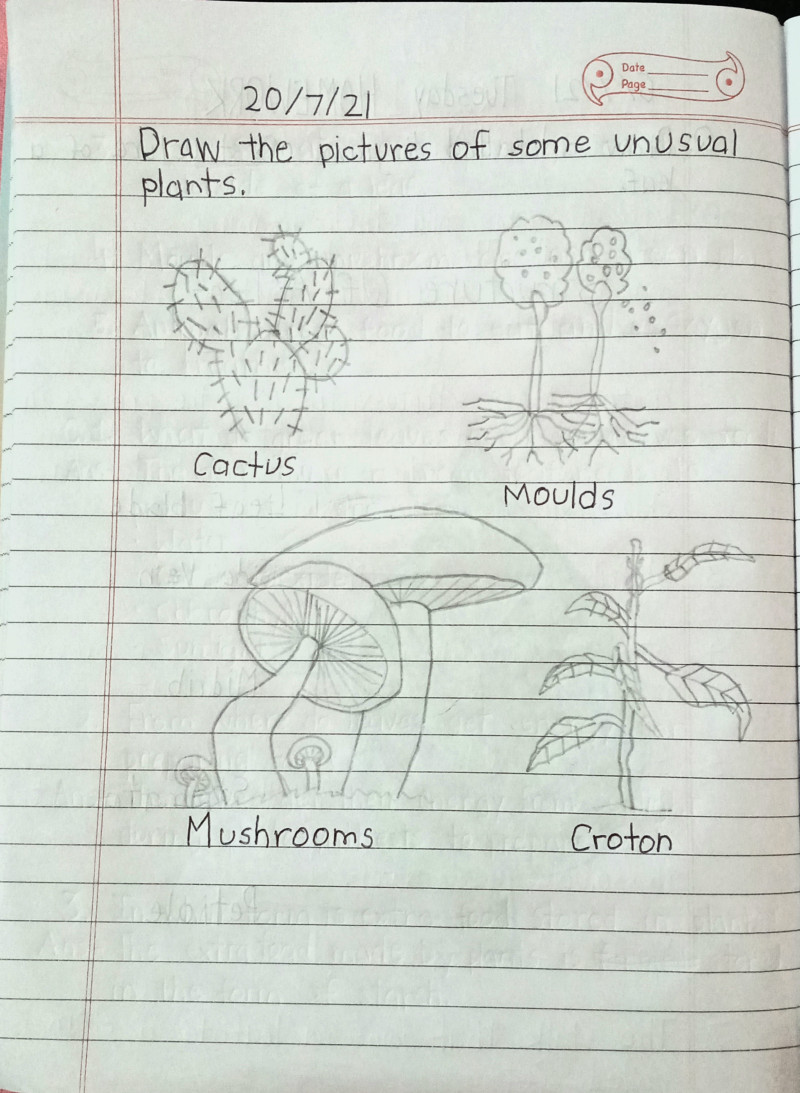 Date
Page
20/7/21
Draw the pictures of some unusual
plants.
Cactus
Moulds
Mushrooms
Croton